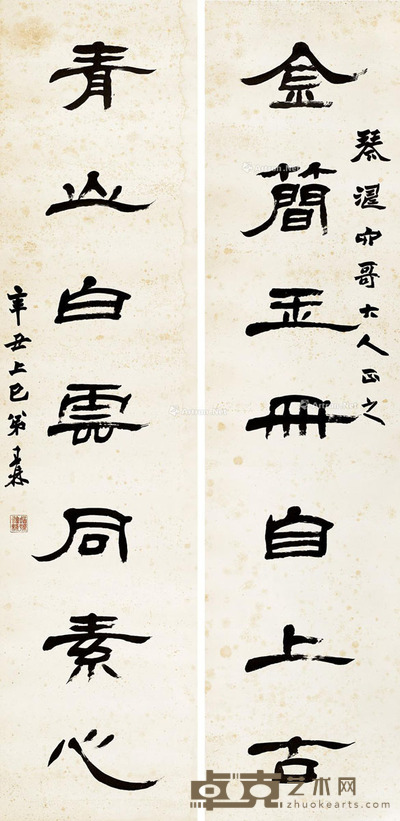 金簡玉冊自上古
哥大人正之
青山白雲同素心
辛丑上巳弟
卓克艺术网
zhuokearts.com